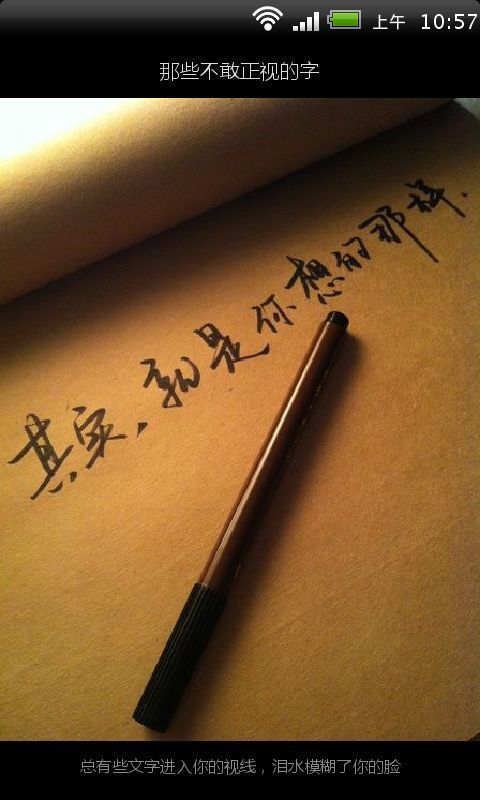 上午 10:57
那些不敢正视的字
其实，就是你想的那样.
总有些文字进入你的视线，泪水模糊了你的脸